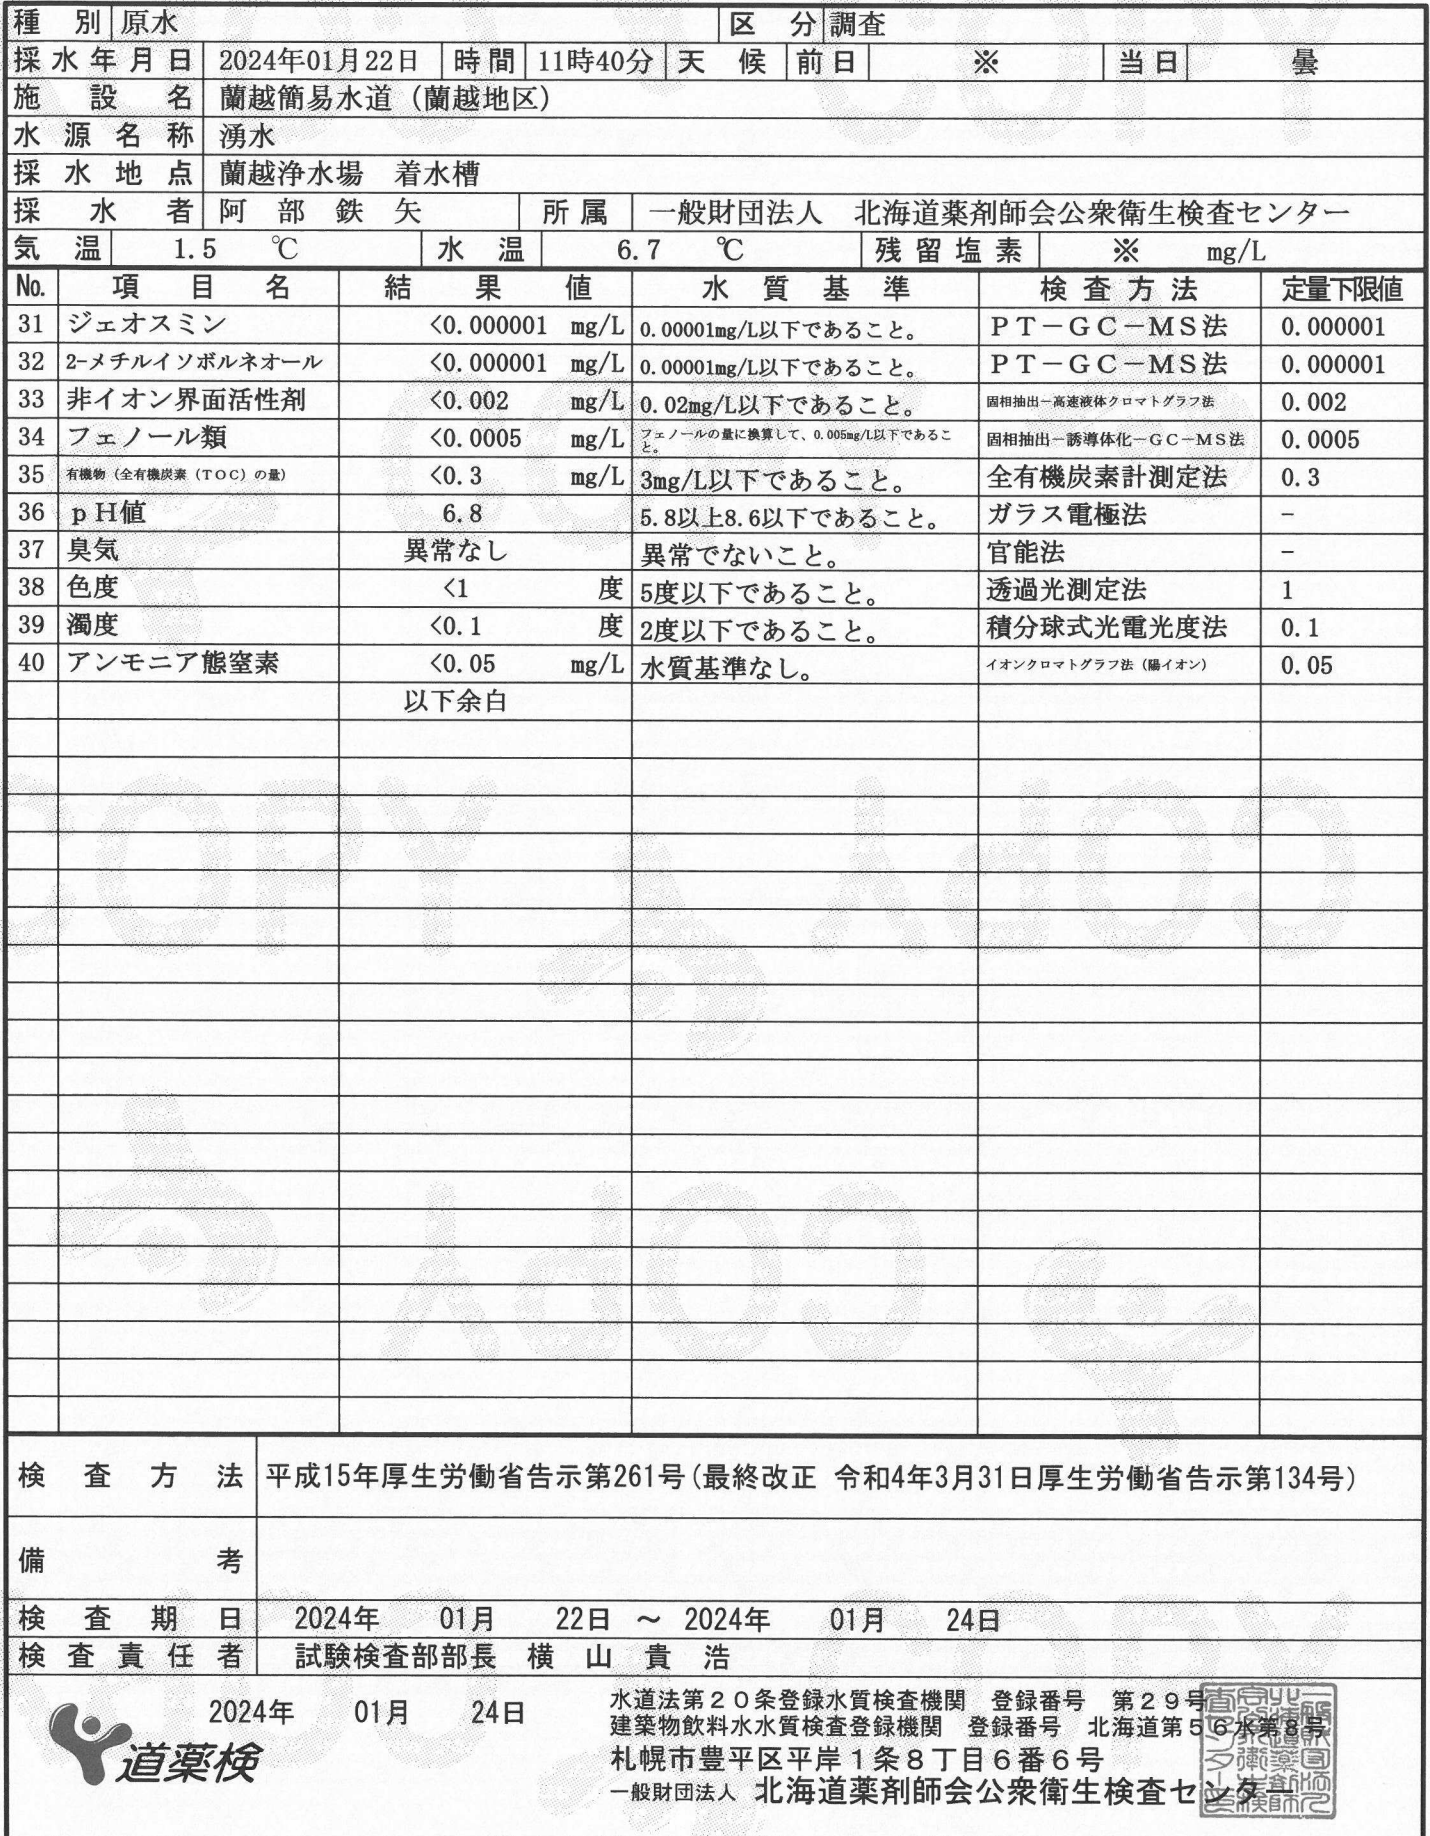 種別 原水 区分 調査
採水年月日 2024年01月22日 時間 11時40分 天候 前日 ※ 当日 曇
施設名 蘭越簡易水道（蘭越地区）
水源名称 湧水
採水地点 蘭越浄水場　着水槽
採水者 阿部鉄矢 所属 一般財団法人　北海道薬剤師会公衆衛生検査センター
気温 1.5 ℃ 水温 6.7 ℃ 残留塩素 ※ mg/L
No. 項目名 結果値 水質基準 検査方法 定量下限値
31 ジェオスミン <0.000001 mg/L 0.00001mg/L以下であること。 ＰＴ－ＧＣ－ＭＳ法 0.000001
32 2-メチルイソボルネオール <0.000001 mg/L 0.00001mg/L以下であること。 ＰＴ－ＧＣ－ＭＳ法 0.000001
33 非イオン界面活性剤 <0.002 mg/L 0.02mg/L以下であること。 固相抽出－高速液体クロマトグラフ法 0.002
34 フェノール類 <0.0005 mg/L フェノールの量に換算して、0.005mg/L以下であるこ
と。 固相抽出－誘導体化－ＧＣ－ＭＳ法 0.0005
35 有機物（全有機炭素（ＴＯＣ）の量） <0.3 mg/L 3mg/L以下であること。 全有機炭素計測定法 0.3
36 ｐＨ値 6.8 5.8以上8.6以下であること。 ガラス電極法 -
37 臭気 異常なし 異常でないこと。 官能法 -
38 色度 <1 度 5度以下であること。 透過光測定法 1
39 濁度 <0.1 度 2度以下であること。 積分球式光電光度法 0.1
40 アンモニア態窒素 <0.05 mg/L 水質基準なし。 イオンクロマトグラフ法（陽イオン） 0.05
以下余白
検査方法 平成15年厚生労働省告示第261号(最終改正 令和4年3月31日厚生労働省告示第134号)
備考
検査期日 2024年 01月 22日 ～ 2024年 01月 24日
検査責任者 試験検査部部長 横山貴浩
2024年 01月 24日
道薬検
水道法第２０条登録水質検査機関　登録番号　第２９号
建築物飲料水水質検査登録機関　登録番号　北海道第５６水第８号
札幌市豊平区平岸１条８丁目６番６号
一般財団法人 北海道薬剤師会公衆衛生検査センター
COPY
COPY
COPY
COPY
COPY
COPY